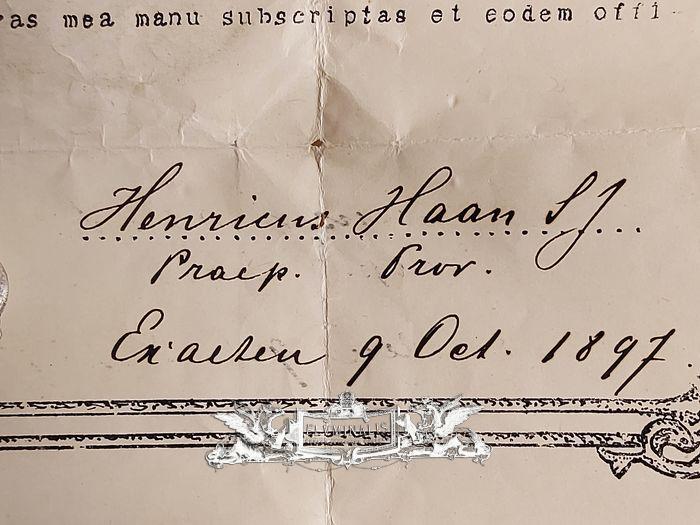 as mea manu subscriptas et eodem offi
Henricus Haan SJ
Praep. Prov.
Exaeten 9 Oct. 1897